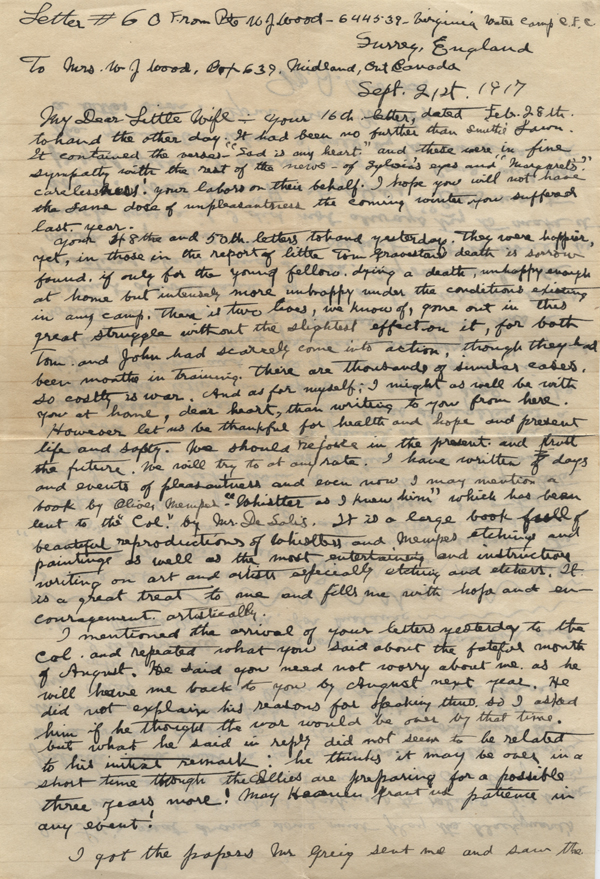 Letter # 60 From Pte W J Wood - 644539 - Virginia Water Camp C.F.C
Surrey, England
To Mrs. W J Wood, Box 639, Midland, Ont Canada
Sept. 21st. 1917
My Dear Little Wife :- Your 16th letter, dated Feb. 28th.
to hand the other day. It had been no further than Smith's Lawn.
It contained the verses "Sad is any heart" and these were in fine
sympathy with the rest of the news - of Sylvia's eyes and "Margaret's"
carelessness. your labors on their behalf. I hope you will not have
the same dose of unpleasantness the coming winter you suffered
last year.
Your 48th and 50th letters to hand yesterday. they were happier,
yet, in those in the report of little Tom death is sorrow
found. if only for the young fellow. dying a death, unhappy enough
at home but intensely more unhappy under the conditions existing
in any camp. there is two lives, we know of, gone out in this
great struggle without the slightest effect on it, for both
Tom and John had scarcely come into action, though they had
been months in training. there are thousands of similar cases.
so costly is war. And as for myself; I might as well be with
you at home, dear heart, than writing to you from here.
However let us be thankful for health and hope and present
life and safty. We should rejoice in the present and trust
the future. We will try to at any rate. I have written of days
and events of pleasantness and even now I may mention a
book by Menpes - "Whistler as I knew him" which has been
lent to the "Col." by Mr. De Salis. It is a large book full of
beautiful reproductions of Whistlers and Menpes etchings and
paintings as well as the most entertaining and instructive
writing on art and artists especially etching and etchers. It
is a great treat to me and fills me with hope and en-
couragement. artistically.
I mentioned the arrival of your letters yesterday to the
Col. and repeated what you said about the fateful month
of August. He said you need not worry about me. as he
will have me back to you by August next year. He
did not explain his reasons for speaking thus. so I asked
him if he thought the war would be over by that time.
but what he said in reply did not seem to be related
to his initial remark: he thinks it may be over in a
short time though the Allies are preparing for a possible
three years more! May Heaven grant us patience in
any event!
I got the papers Mr Greig sent me and saw the